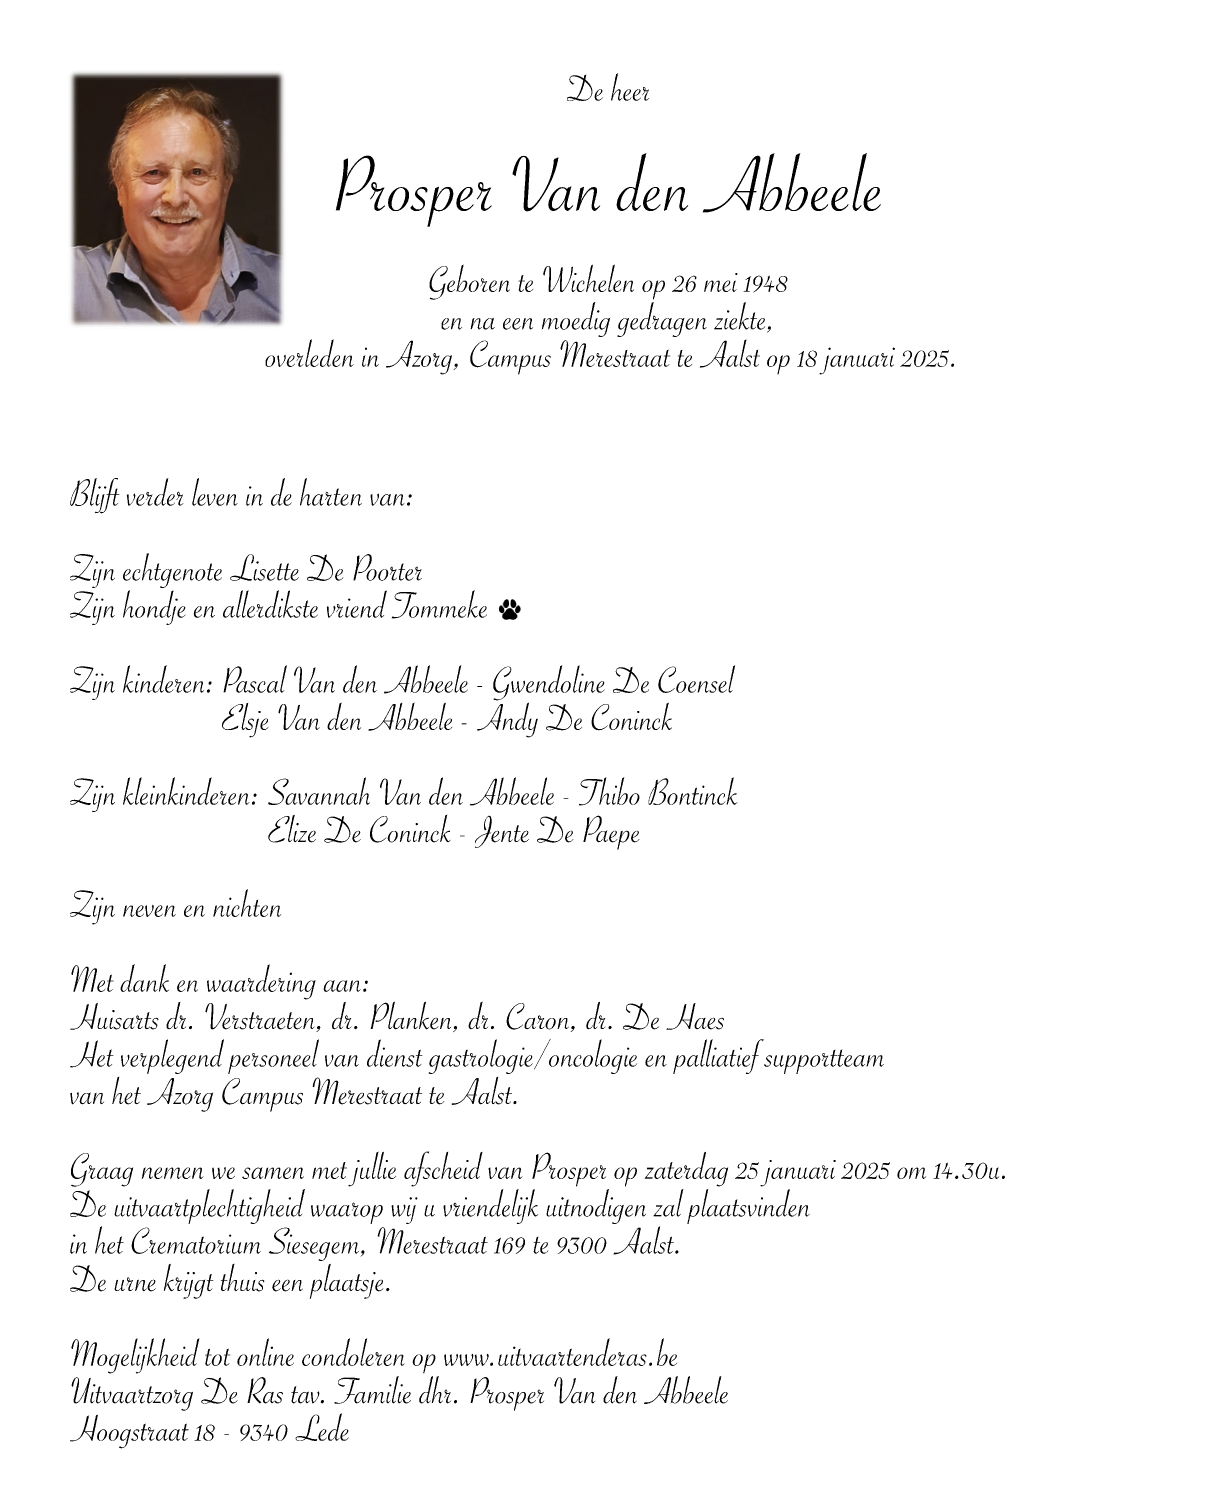 De heer
Prosper Van den Abbeele
Geboren te Wichelen op 26 mei 1948
en na een moedig gedragen ziekte,
overleden in Azorg, Campus Merestraat te Aalst op 18 januari 2025.
Blijft verder leven in de harten van:
Zijn echtgenote Lisette De Poorter
Zijn hondje en allerdikste vriend Tommeke
Zijn kinderen: Pascal Van den Abbeele - Gwendoline De Coensel
Elsje Van den Abbeele - Andy De Coninck
Zijn kleinkinderen: Savannah Van den Abbeele - Thibo Bontinck
Elize De Coninck - Jente De Paepe
Zijn neven en nichten
Met dank en waardering aan:
Huisarts dr. Verstraeten, dr. Planken, dr. Caron, dr. De Haes
Het verplegend personeel van dienst gastrologie/oncologie en palliatief supportteam
van het Azorg Campus Merestraat te Aalst.
Graag nemen we samen met jullie afscheid van Prosper op zaterdag 25 januari 2025 om 14.30u.
De uitvaartplechtigheid waarop wij u vriendelijk uitnodigen zal plaatsvinden
in het Crematorium Siesegem, Merestraat 169 te 9300 Aalst.
De urne krijgt thuis een plaatsje.
Mogelijkheid tot online condoleren op www.uitvaartenderas.be
Uitvaartzorg De Ras tav. Familie dhr. Prosper Van den Abbeele
Hoogstraat 18 - 9340 Lede